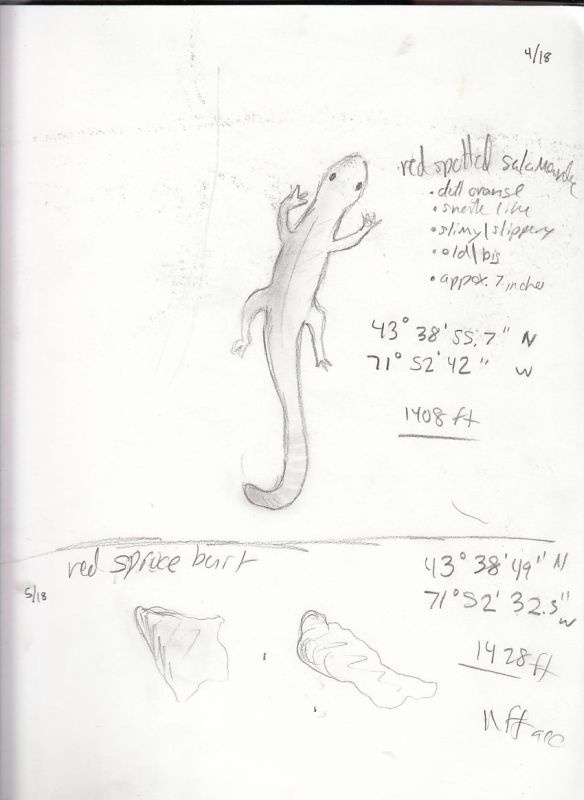 4/18
red spotted salamander
• dull orange
• snake like
• slimy/slippery
• old/big
• appox. 7 inches
43° 38' 55.7" N
71° 52' 42" W
1408 ft
red spruce burl
43° 38' 49" N
5/18
71° 52' 32.5" W
1428 ft
11 ft